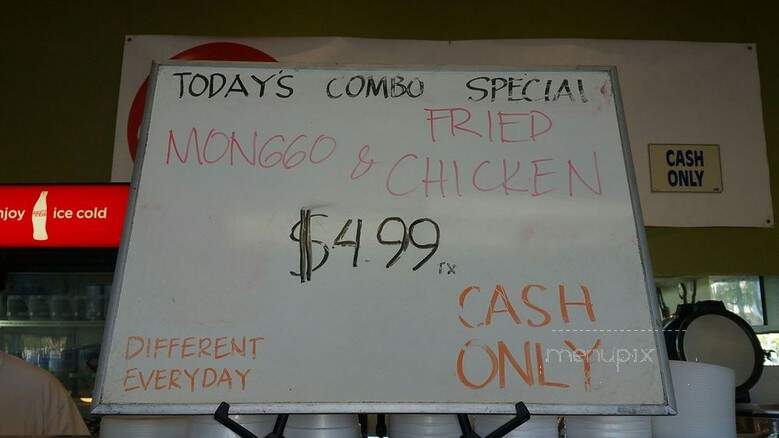 TODAY'S COMBO SPECIAL
MONGGO & FRIED CHICKEN
$4.99
TX
CASH ONLY
DIFFERENT EVERYDAY
CASH ONLY
njoy Coca-Cola ice cold
menupix